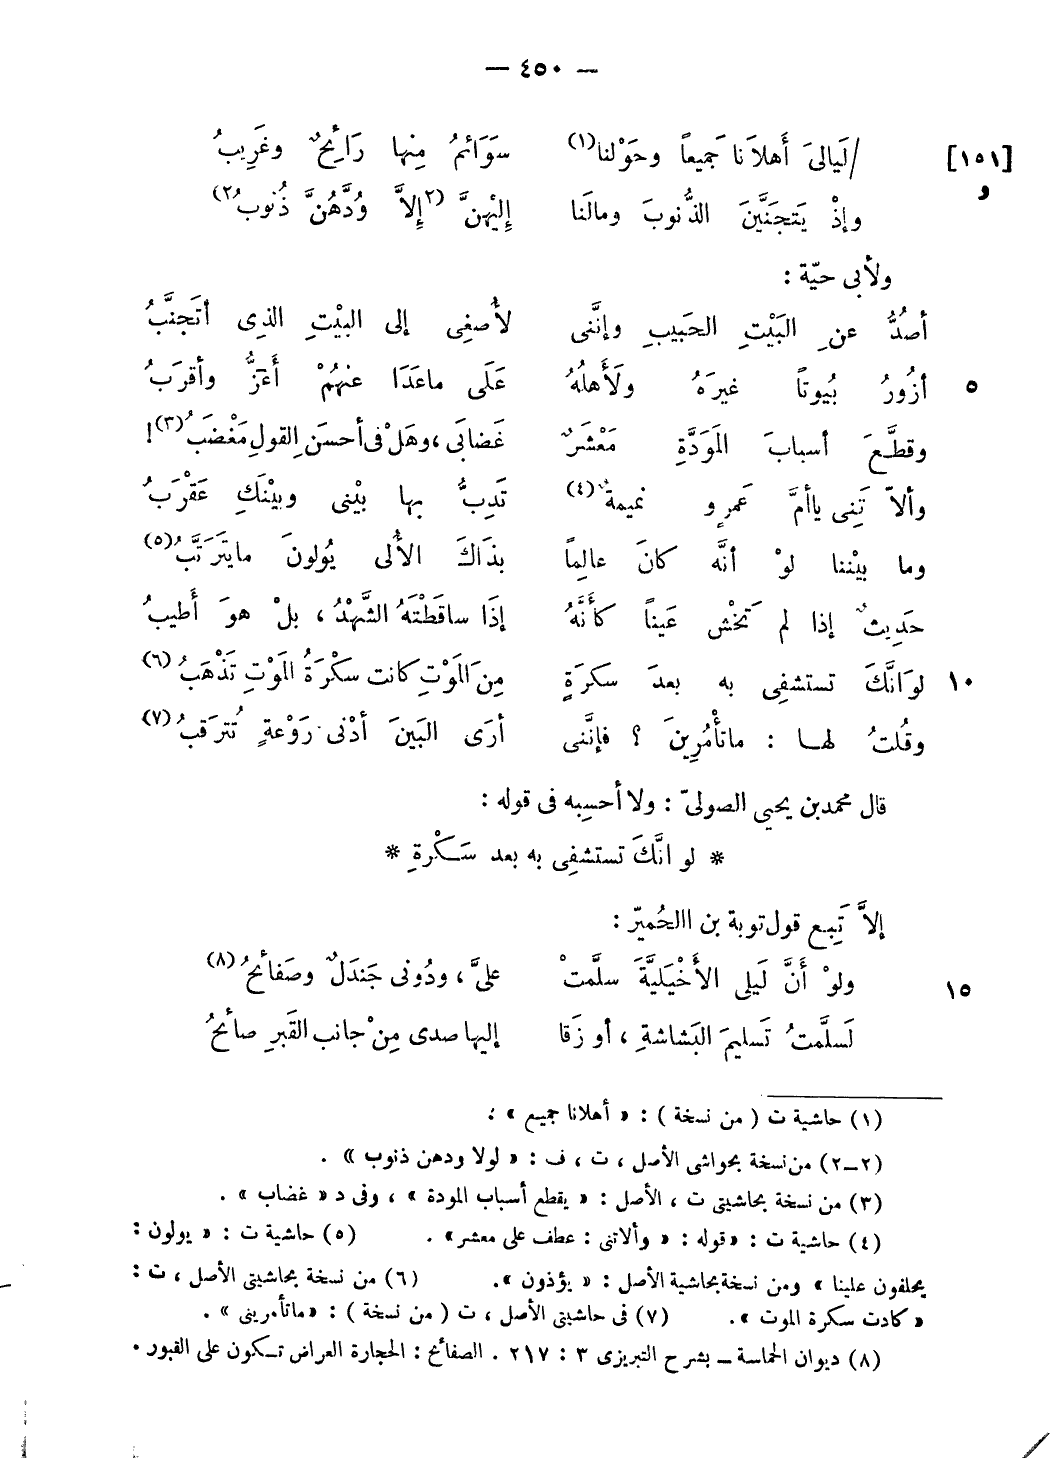 — ٤٥٠ —
[١٥١] /لَيالىَ أَهلاَنا جَميعاً وحَوْلنا(١) سوَائمُ مِنها رَائحٌ وغَرِيبُ
و
وإذْ يَتجَنَّيَن الذُّنوبَ ومالَنا إليْهنَّ (٢إلاَّ وُدَّهُنَّ ذُنوبُ٢)
ولأبى حيّة :
أصُدُّ عن ِ البَيْتِ الحَبيبِ وإنَّنى لأُصغِى إلى البيْتِ الذِى أتَجنَّبُ
٥ أزُورُ بُيوتاً غيرَهُ ولَأَهلُهُ عَلَى ماعَدَا عنهُمْ أَعَزُّ وأقرَبُ
وقطَّعَ أسبابَ المَوَدَّةِ مَعْشَرٌ غَضابَى ،وهَلْ فى أحسَنِ القولِ مَغْضَبُ(٣)!
وألاّ تَنِى ياأمَّ عَمرٍو نميمةٌ(٤) تَدِبُّ بها بيْنى وبيْنَكِ عَقْرَبُ
وما بيْننا لوْ أنَّه كانَ عالِماً بذَاكَ الأُلى يُولونَ مايَتَرَتَّبُ(٥)
حَدِيثٌ إذا لم تَخْش عَيناً كأَنَّهُ إذَا ساقَطْتَهُ الشَّهْدُ ، بلْ هوَ أَطيبُ
١٠ لوَانَّكَ تستشفِى به بعدَ سكرَةٍ مِنَ المَوْتِ كانت سكْرَةُ المَوْتِ تَذْهَبُ(٦)
وقُلتُ لها : ماتأْمُرِينَ ؟ فإنَّنى أرَى البَينَ أدْنى رَوْعةٍ تُترَقبُ(٧)
قال محمدبن يحيى الصولىّ : ولا أحسِبه فى قوله :
* لو انَّكَ تستشفِى به بعد سَكْرةِ *
إلاَّ تَبِع قول توبة بن الالحُميّر :
١٥ ولوْ أَنَّ لَيلى الأَخْيَليَّةَ سلَّمتْ علىَّ ، ودُونى جَندَلٌ وصَفائحُ(٨)
لَسلَّمتُ تَسليمَ البَشاشةِ ، أو زَقا إليها صدى مِنْ جانب القَبرِ صائحُ
(١) حاشية ت ( من نسخة ) : « أهلانا جميع » ؛
(٢–٢) من نسخة بحواشى الأصل ، ت ، ف : « لولا ودهن ذنوب » .
(٣) من نسخة بحاشيتى ت ، الأصل : « يقطع أسباب المودة » ، وفى د « غضاب » .
(٤) حاشية ت : «قوله : « وألاتنى : عطف على معشر» . (٥) حاشية ت : « يولون :
يحلفون علينا » ومن نسخة بحاشية الأصل : « يؤذون ». (٦) من نسخة بحاشيتى الأصل ، ت :
« كادت سكرة الموت ». (٧) فى حاشيتى الأصل ، ت ( من نسخة ) : «ماتأمرينى » .
(٨) ديوان الحماسة – بشرح التبريزى ٣ : ٢١٧ . الصفائح : الحجارة العراض تكون على القبور .